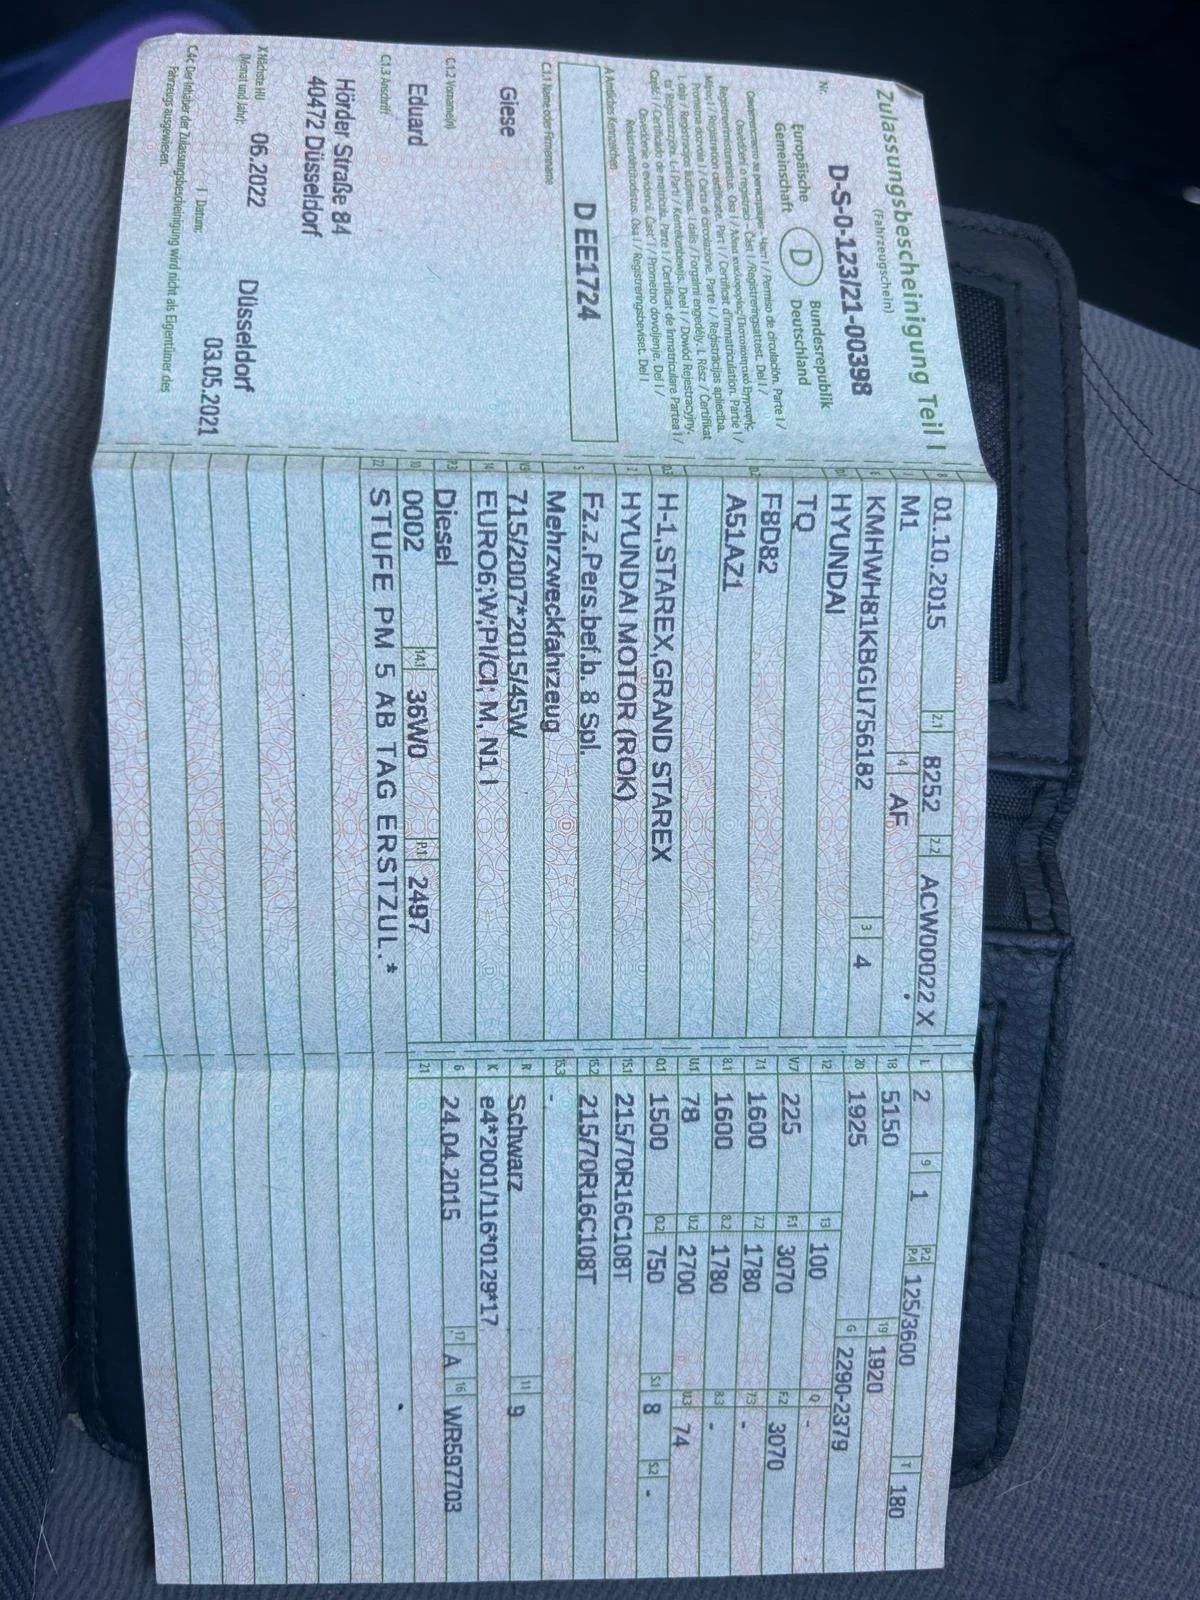 Zulassungsbescheinigung Teil I
(Fahrzeugschein)
Nr. D-S-0-123/21-00398
Europäische Gemeinschaft D Bundesrepublik Deutschland
A Amtliches Kennzeichen
D EE1724
C.1.1 Name oder Firmenname
Giese
C.1.2 Vorname(n)
Eduard
C.1.3 Anschrift
Hörder Straße 84
40472 Düsseldorf
X Nächste HU (Monat und Jahr): 06.2022
I Datum: Düsseldorf
03.05.2021
C.4c Der Inhaber der Zulassungsbescheinigung wird nicht als Eigentümer des
Fahrzeugs ausgewiesen.
01.10.2015 2.1 8252 2.2 ACW00022 X
M1 4 AF
KMHWH81KBGU756182 3 4
HYUNDAI
TQ
F8D82
A51AZ1
H-1,STAREX,GRAND STAREX
HYUNDAI MOTOR (ROK)
Fz.z.Pers.bef.b. 8 Spl.
Mehrzweckfahrzeug
715/2007*2015/45W
EURO6;W;PI/CI; M, N1 I
Diesel
0002 14.1 36W0 P.1 2497
22 STUFE PM 5 AB TAG ERSTZUL.*
L 2 9 1 P.2 P.4 125/3600 T 180
18 5150 19 1920
20 1925 G 2290-2379
12 13 100 Q -
V.7 225 F.1 3070 F.2 3070
7.1 1600 7.2 1780 7.3 -
8.1 1600 8.2 1780 8.3 -
U.1 78 U.2 2700 U.3 74
O.1 1500 O.2 750 S.1 8 S.2 -
15.1 215/70R16C108T
15.2 215/70R16C108T
15.3 -
R Schwarz 11 9
K e4*2001/116*0129*17
6 24.04.2015 17 A 16 WR597703
21